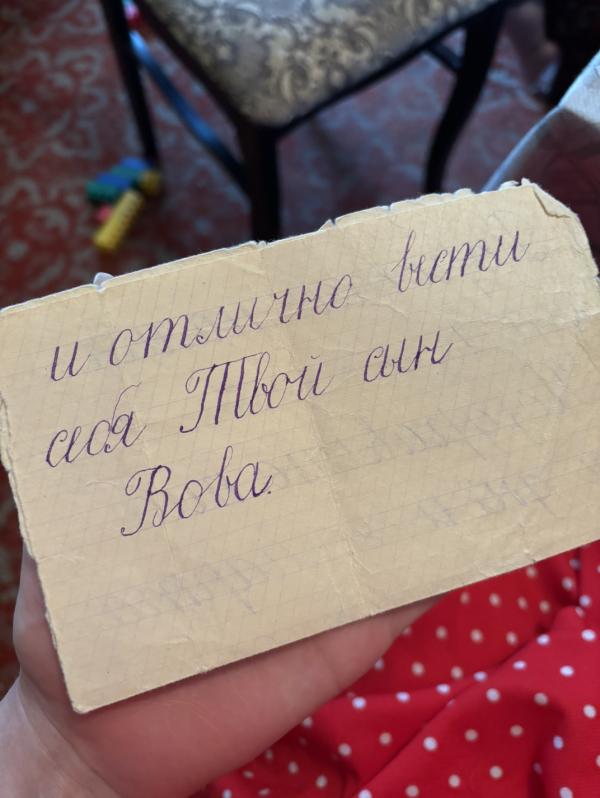 и отлично вести
себя Твой сын
Вова.